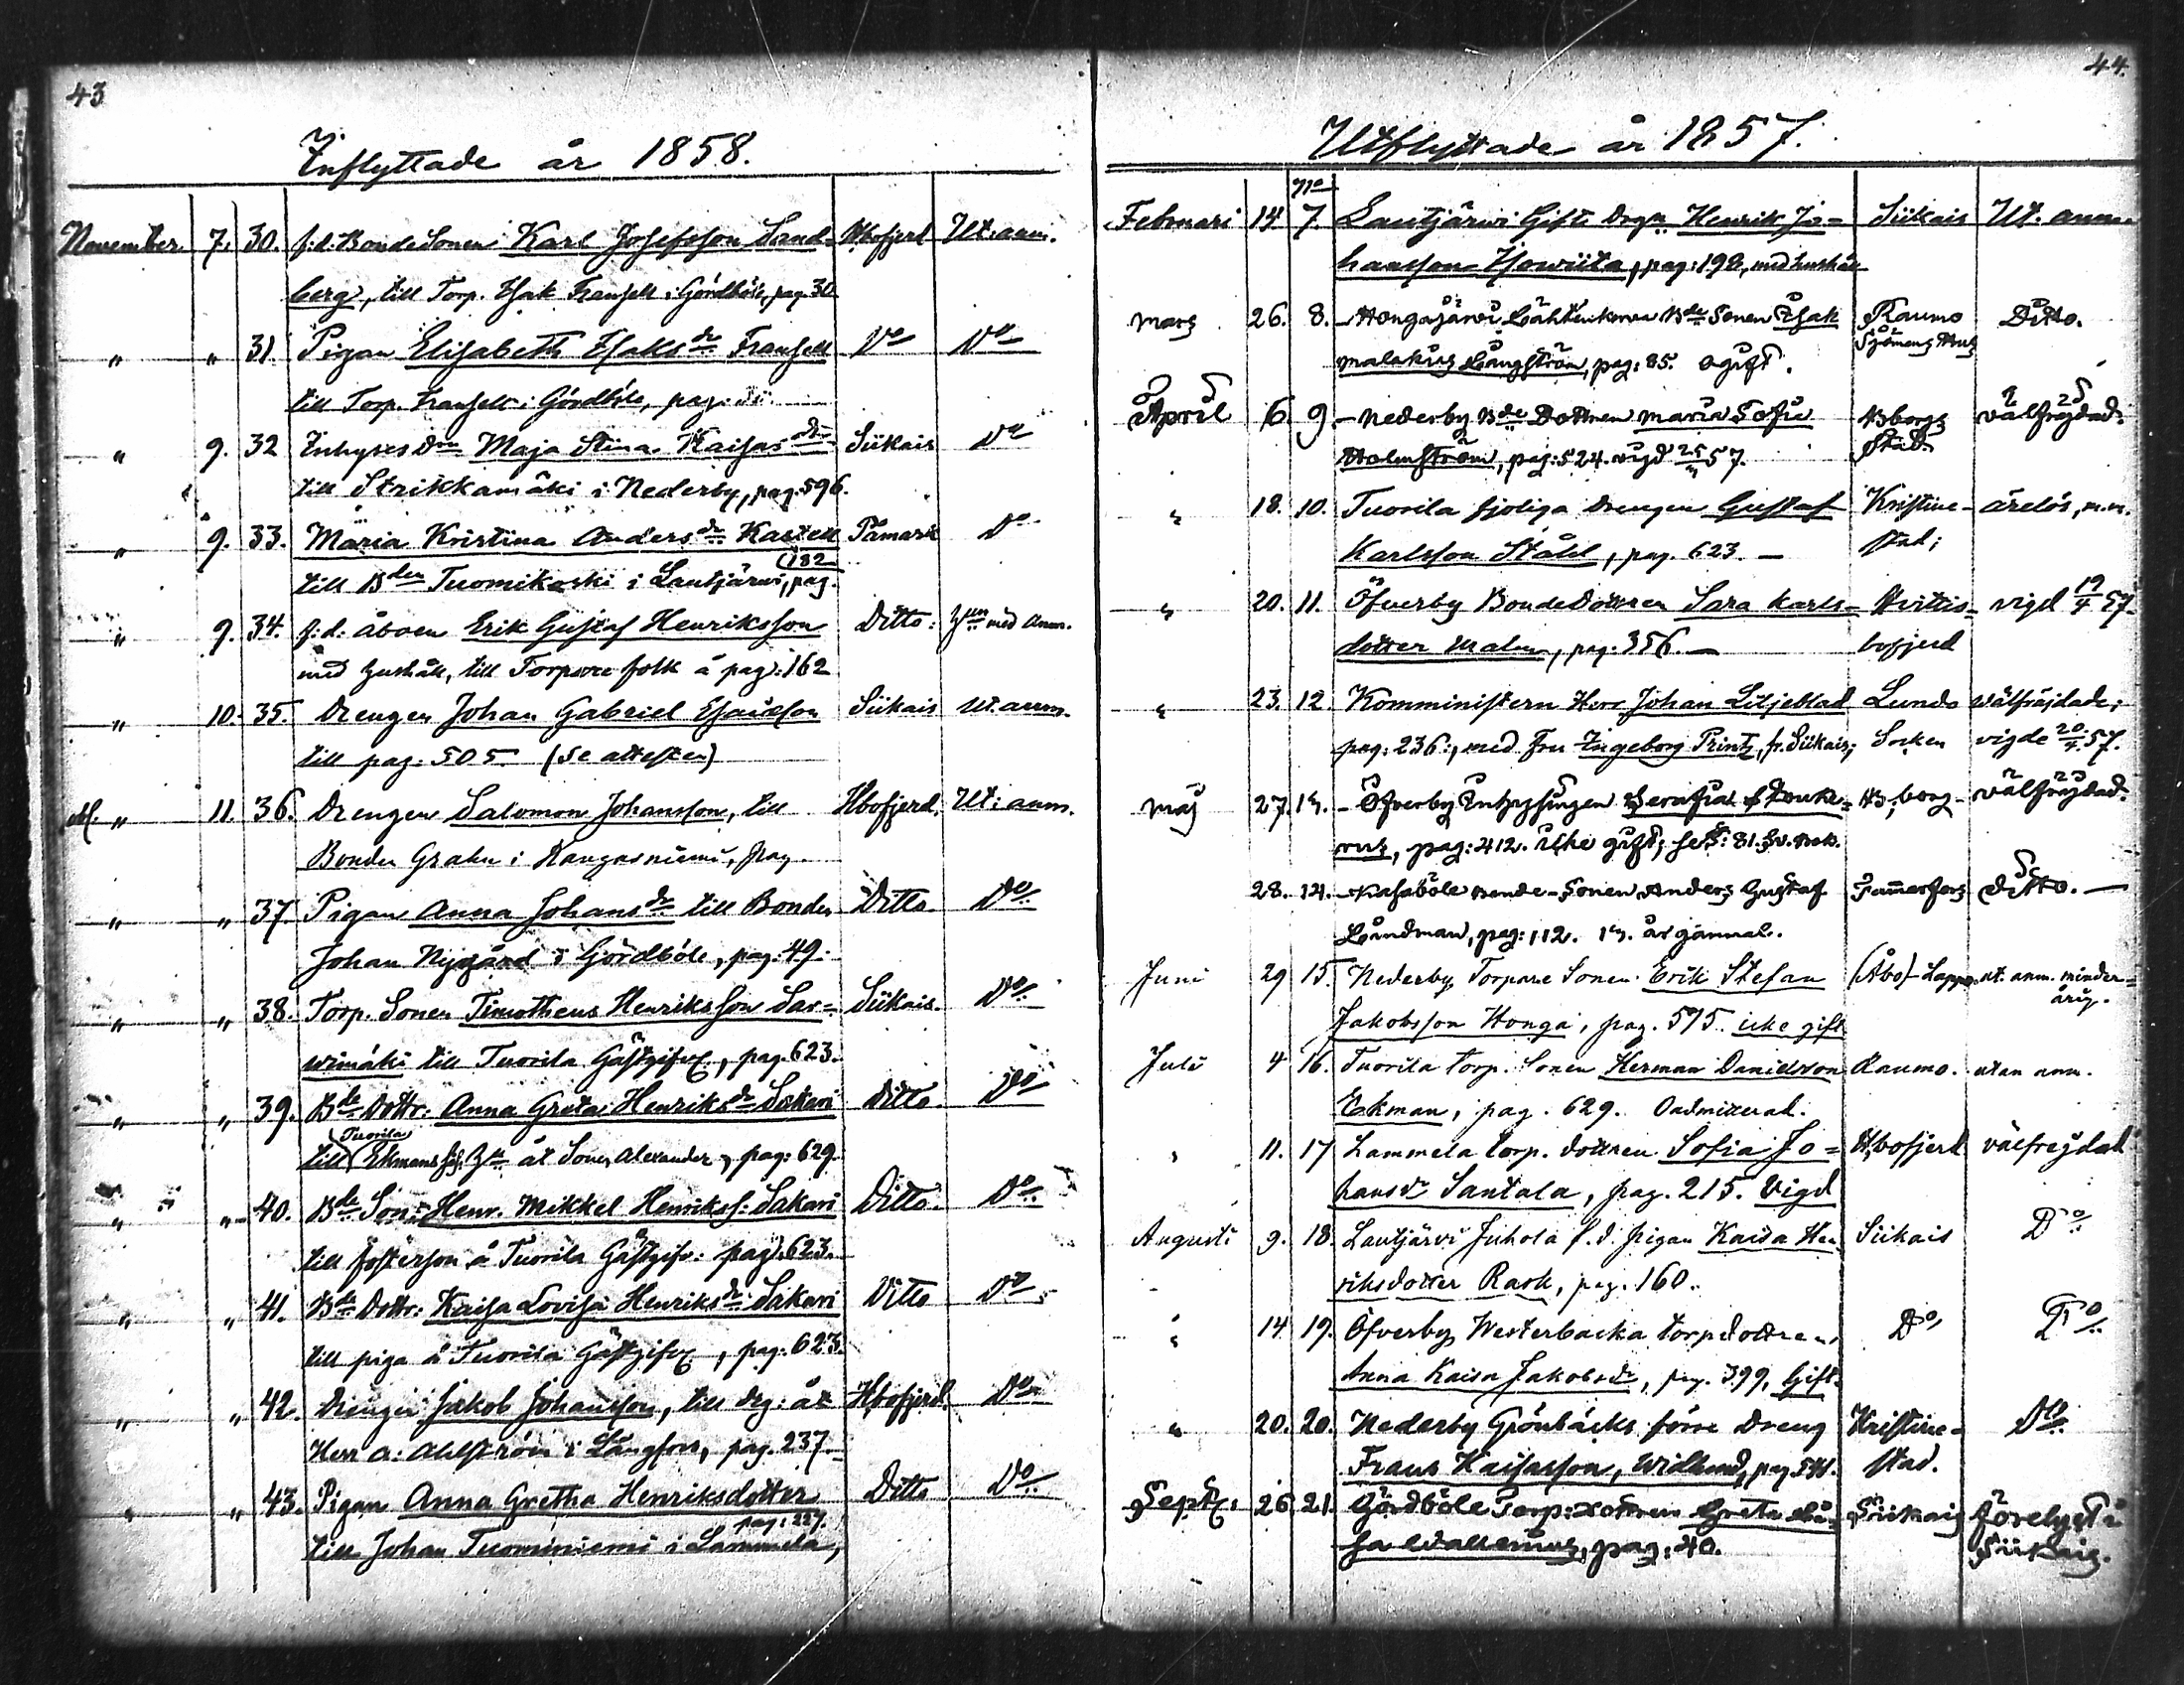 43
Inflyttade år 1858.
November. 7. 30. f.d. BondeSonen Karl Josefsson Sand- Hbofjerd Ut. anm.
berg, till Torp. Isak Fransell i Gördböle, pag. 30
" " 31. Pigan Elisabeth Isaksdr Fransell Do Do
till Torp. Fransell i Gördböle, pag.
" 9. 32 Inhyses Maja Stina Kaisasdr Siikais Do
till Strikkamäki i Nederby, pag. 596.
" 9. 33. Maria Kristina Andersdr Kastell Påmark Do
till Bden Tuomikoski i Lautjärvi, pag. 182
" 9. 34. f.d. åboen Erik Gustaf Henriksson Ditto. med anm.
med hushåll, till Torpare folk å pag. 162
" 10. 35. Drengen Johan Gabriel Esaiasson Siikais ut. anm.
till pag. 505 (Se attesten)
" 11. 36. Drengen Salomon Johansson, till Hbofjerd. Ut. anm.
Bonden Grahn i Kangasniemi, pag
" " 37. Pigan Anna Johansdr till Bonden Ditto. Do
Johan Nygård i Gördböle, pag. 49.
" " 38. Torp. Sonen Timotheus Henriksson Sar- Siikais. Do
wimäki till Tuorila Gästgif, pag. 623.
" " 39. Bde Dottr. Anna Greta Henriksdr Sakari Ditto Do
till Tuorila Ekmans åt Sonen Alexander, pag. 629.
" " 40. Bde Son Henr. Mikkel Henrikss. Sakari Ditto. Do
till fosterson å Tuorila Gästgifv: pag. 623.
" " 41. Bde Dottr. Kaisa Lovisa Henriksdr Sakari Ditto Do
till piga å Tuorila Gästgif, pag. 623.
" " 42. Drengen Jakob Johansson, till drg: åt Hbofjerd Do
Herr A. Ahlström i Långfors, pag. 237.
" " 43. Pigan Anna Gretha Henriksdotter Ditto Do
till Johan Tuominiemi i Lammela, pag. 227.
44.
Utflyttade år 1857.
No
Februari 14 7. Lautjärwi Gifte drgn Henrik Jo- Siikais Ut. anm.
hansson, pag: 198, med hushåll
Mars 26. 8. Hongajärvi Bde Sonen Isak Raumo Ditto.
Malakias Långström, pag: 85. Ogift. Sjömans Hus
April 6. 9. Nederby Bde Dottren Maria Sofia Bborgs välfrejdad.
Holmström, pag: 524. vigd 57. Stad.
" 18. 10. Tuorila sjoliga drengen Gustaf Kristine- ärelös, m.m.
Karlsson Ståhl, pag. 623. — stad;
" 20. 11. Öfverby BondeDottren Sara Karls- Hvittis- vigd 19/4 57.
dotter Malm, pag: 356. — bofjerd
" 23. 12. Komministern Herr Johan Liljeblad Lundo wälfräjdade;
pag: 236:, med Fru Ingeborg Printz, fr. Siikais; Socken vigde 20/4 57.
Maj 27. 13. Öfverby Inhysingen Serafia B:borg välfrejdad.
pag: 412. icke gift; 81.
28. 14. Kasaböle Bonde-Sonen Anders Gustaf Tammerfors ditto. —
Lundman, pag: 112. 13. år gammal.
Juni 29 15. Nederby Torpare Sonen Erik Stefan (Åbo) Lappo ut. anm. minder-
Jakobsson Honga, pag. 575. icke gift årig.
Juli 4 16. Tuorila torp. Sonen Herman Danielsson Raumo. utan anm.
Ekman, pag. 629. Oadmitterad.
" 11. 17 Lammela torp. dottren Sofia Jo- Hvbofjerd välfrejdad
hansdr Santala, pag. 215. Vigd
Augusti 9. 18. Lautjärvi Juhola f.d. pigan Kaisa Hen- Siikais Do
riksdotter Rask, pag. 160.
" 14 19. Öfverby Westerbacka torpdottren Do Do
Anna Kaisa Jakobsdr, pag. 399, Gift.
" 20. 20. Nederby Grönbäcks förre Dreng Kristine- Do
Frans Kaisasson, Widlund, pag. stad.
Sept. 26. 21. Gördböle Torp: Dottren Greta Lii- Siikais förelyst i
sa Wallenius, pag: 40. Siikais.